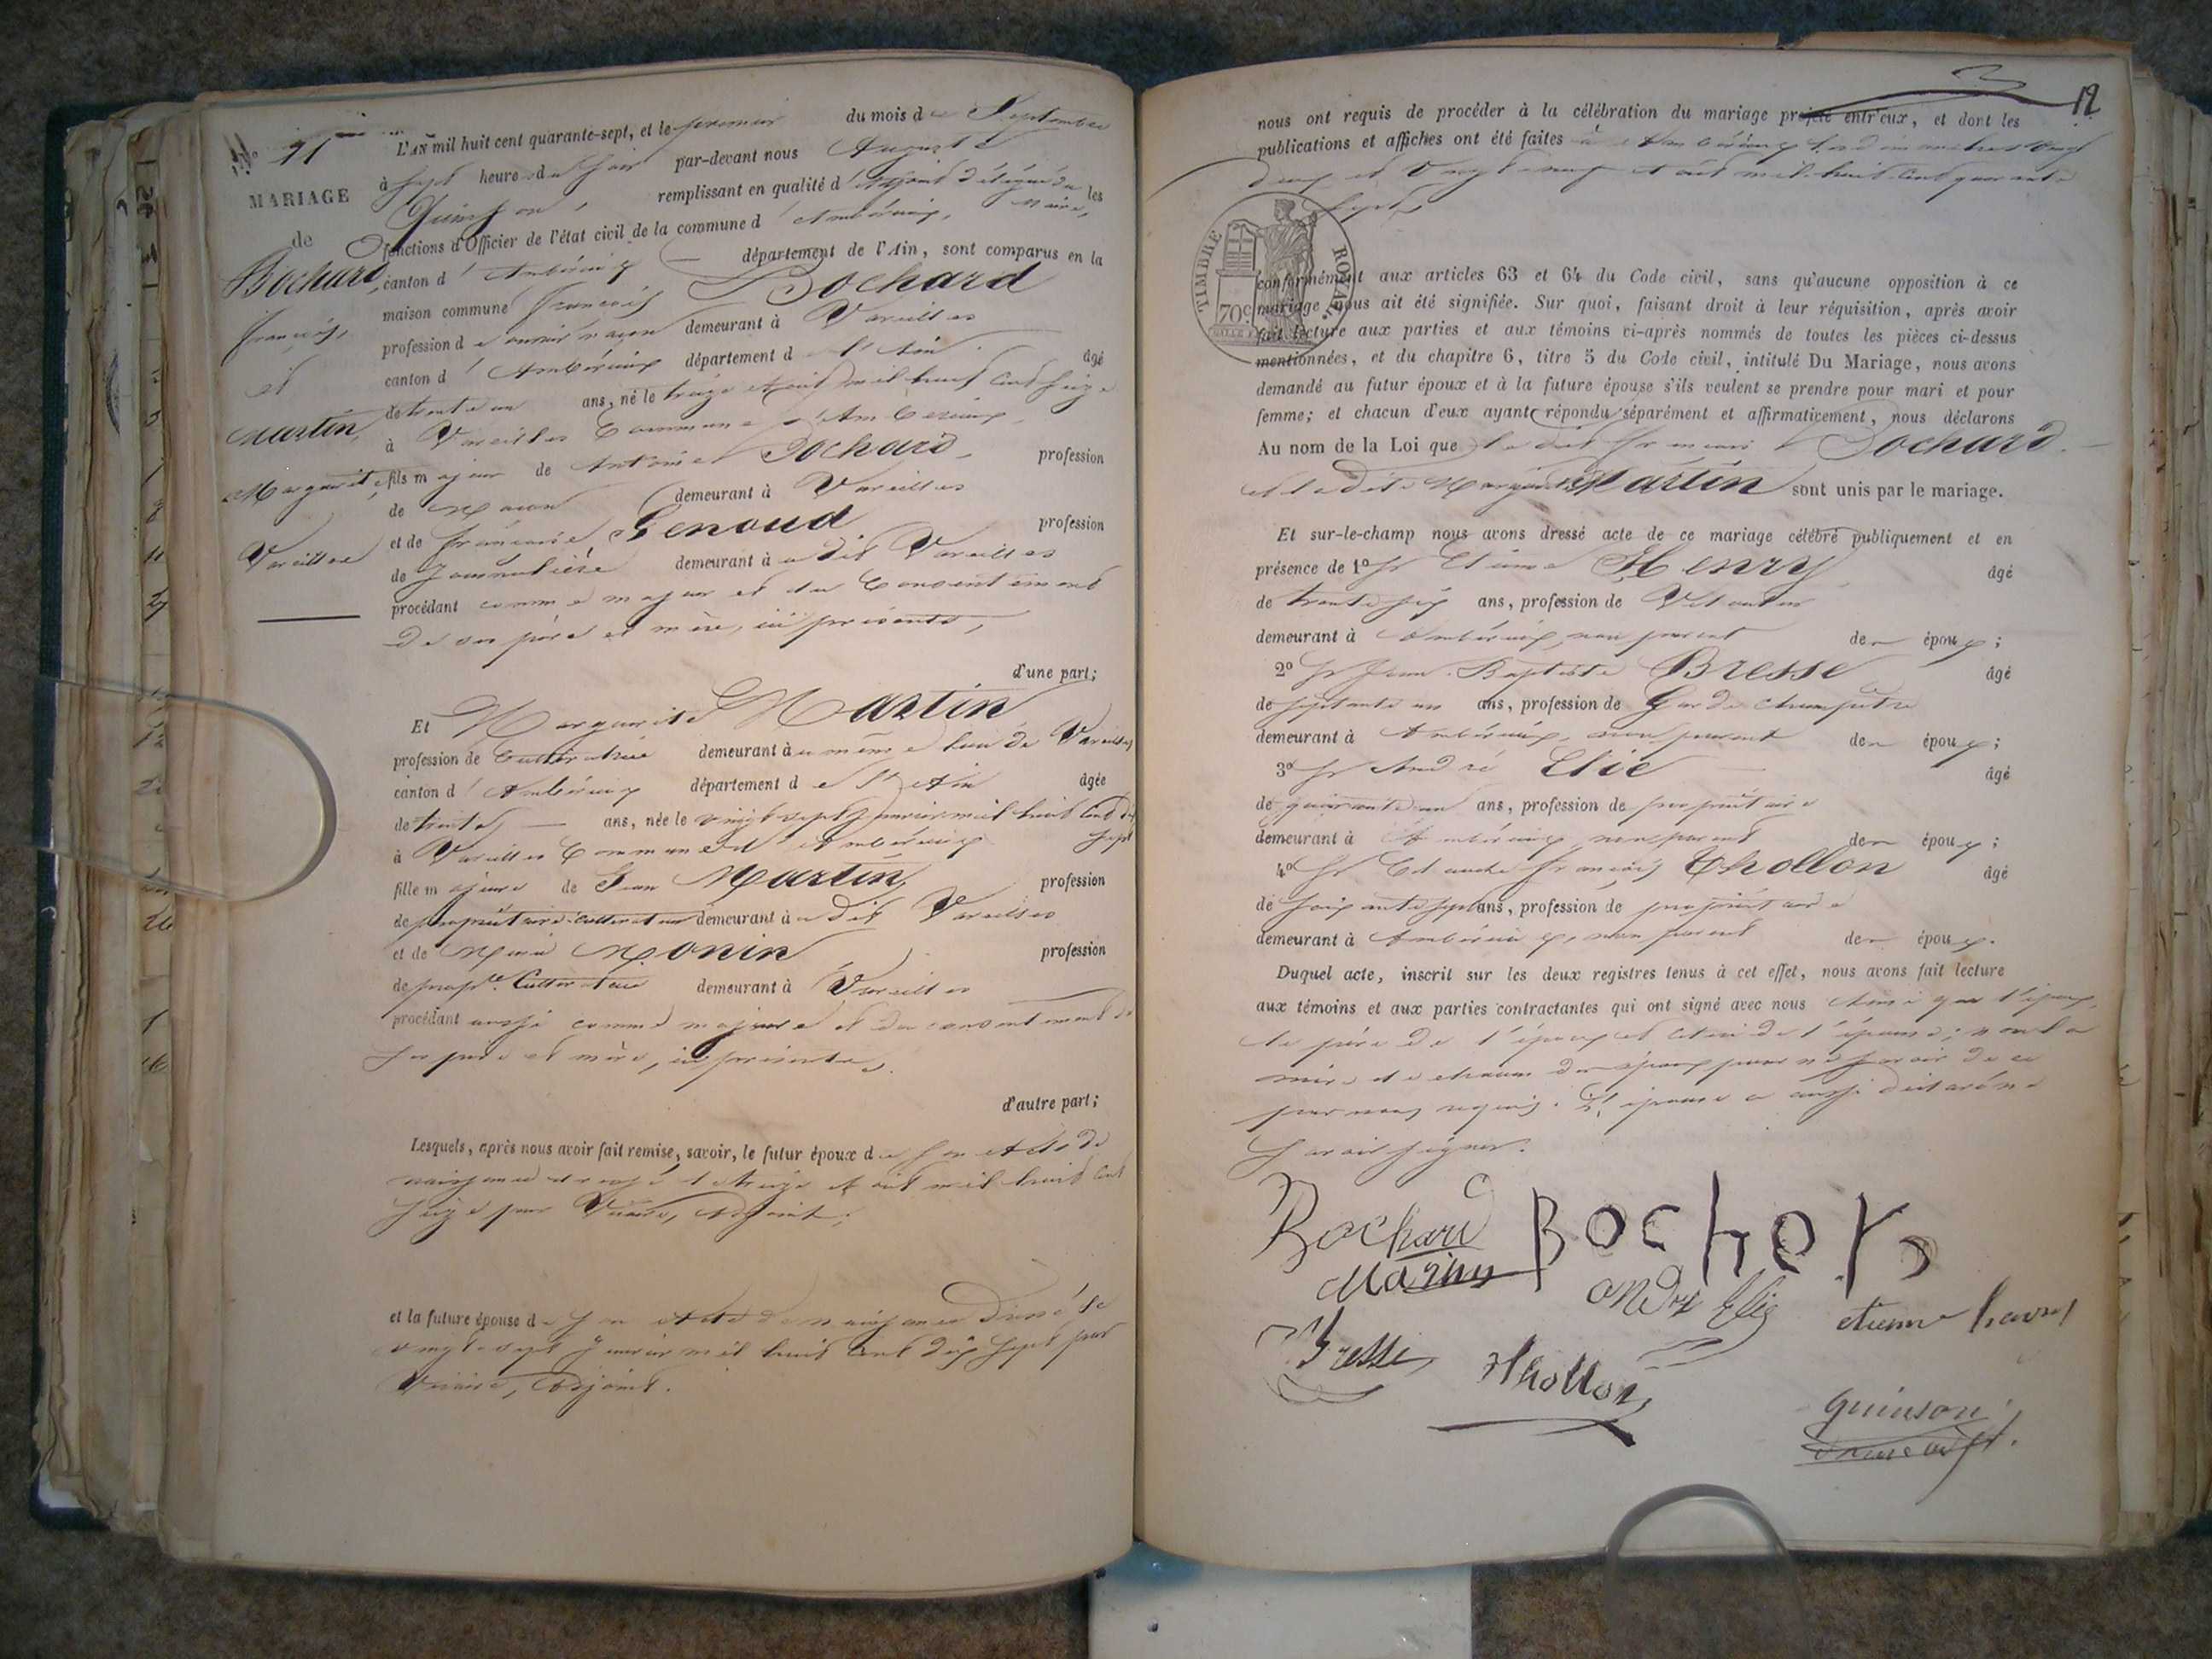 N° 11
MARIAGE
de
Bochard,
François,
et
Martin,
Marguerite,
Vareilles
L'AN mil huit cent quarante-sept, et le premier du mois de Septembre
à sept heure du soir par-devant nous Auguste
Quinson, remplissant en qualité d'adjoint délégué du Maire, les
fonctions d'Officier de l'état civil de la commune d'Ambérieux,
canton d'Ambérieux département de l'Ain, sont comparus en la
maison commune François Bochard
profession de ouvrier maçon demeurant à Vareilles
canton d'Ambérieux département de l'Ain âgé
de trente un ans, né le treize Août mil huit cent seize
à Vareilles Commune d'Ambérieux
fils majeur de Antoine Bochard, profession
de Maçon demeurant à Vareilles
et de Françoise Genoud profession
de Journalière demeurant à dit Vareilles
procédant comme majeur et du Consentement
de ses père et mère, ici présents,
d'une part;
Et Marguerite Martin
profession de Cultivatrice demeurant à même lieu de Vareilles
canton d'Ambérieux département de l'Ain âgée
de trente ans, née le vingt sept Janvier mil huit Cent dix sept
à Vareilles Commune d'Ambérieux
fille majeure de Jean Martin, profession
de propriétaire-cultivateur demeurant à dit Vareilles
et de Marie Monin profession
de prop.re Cultivatrice demeurant à Vareilles
procédant aussi comme majeure et du consentement de
ses père et mère, ici présents.
d'autre part;
Lesquels, après nous avoir fait remise, savoir, le futur époux de son Acte de
naissance dressé le treize Août mil huit cent
seize par adjoint;
et la future épouse de son Acte de naissance dressé le
vingt-sept Janvier mil huit Cent dix sept par
adjoint.
12
nous ont requis de procéder à la célébration du mariage projeté entr'eux, et dont les
publications et affiches ont été faites à Ambérieux les dimanches vingt
deux et vingt neuf Août mil huit Cent quarante
sept,
TIMBRE ROYAL
70c
conformément aux articles 63 et 64 du Code civil, sans qu'aucune opposition à ce
mariage nous ait été signifiée. Sur quoi, faisant droit à leur réquisition, après avoir
fait lecture aux parties et aux témoins ci-après nommés de toutes les pièces ci-dessus
mentionnées, et du chapitre 6, titre 5 du Code civil, intitulé Du Mariage, nous avons
demandé au futur époux et à la future épouse s'ils veulent se prendre pour mari et pour
femme; et chacun d'eux ayant répondu séparément et affirmativement, nous déclarons
Au nom de la Loi que le dit François Bochard
et la dite Marguerite Martin sont unis par le mariage.
Et sur-le-champ nous avons dressé acte de ce mariage célébré publiquement et en
présence de 1º Sr Etienne Henry âgé
de trente six ans, profession de
demeurant à Ambérieux, non parent des époux;
2º Sr Jean-Baptiste Bresse âgé
de septante un ans, profession de Garde champêtre
demeurant à Ambérieux, non parent des époux;
3º Sr André Elie âgé
de quarante un ans, profession de propriétaire
demeurant à Ambérieux, non parent des époux;
4º Sr Claude François Chollon âgé
de soixante sept ans, profession de propriétaire
demeurant à Ambérieux, non parent des époux.
Duquel acte, inscrit sur les deux registres tenus à cet effet, nous avons fait lecture
aux témoins et aux parties contractantes qui ont signé avec nous Ainsi que l'époux,
le père de l'époux et celui de l'épouse; non la
mère de chacun des époux pour ne savoir de ce
par nous requis. L'épouse a aussi déclaré ne
savoir signer.
Bochard BOchard
Martin
andré Elie etienne henry
Bresse Chollon
quinson